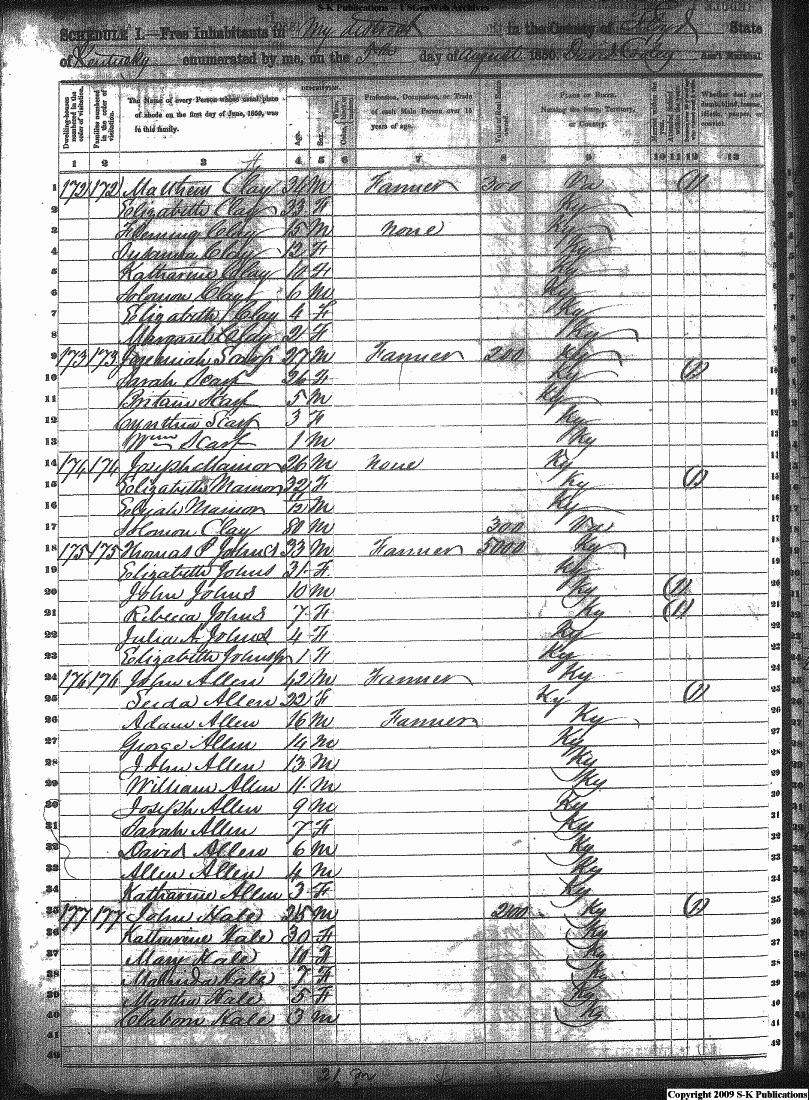 S-K Publications - USGenWeb Archives
SCHEDULE I.—Free Inhabitants in My district in the County of Floyd State
of Kentucky enumerated by me, on the 9th day of August 1850. David Conley Ass't Marshal
Dwelling-houses numbered in the order of visitation. Families numbered in the order of visitation. The Name of every Person whose usual place of abode on the first day of June, 1850, was in this family. DESCRIPTION. Age. Sex. Profession, Occupation, or Trade of each Male Person over 15 years of age. Value of Real Estate owned. PLACE OF BIRTH. Naming the State, Territory, or Country. Whether deaf and dumb, blind, insane, idiotic, pauper, or convict.
1 2 3 4 5 6 7 8 9 10 11 12 13
1 172 172 Matthew Clay 34 M Farmer 300 Va (1) 1
2 Elizabeth Clay 33 F Ky 2
3 Fleming Clay 15 M None Ky 3
4 Clay 13 F Ky 4
5 Katharine Clay 10 F Ky 5
6 Solomon Clay 6 M Ky 6
7 Elizabeth Clay 4 F Ky 7
8 Margaret Clay 2 F Ky 8
9 173 173 Jeremiah Scarf 27 M Farmer 200 Ky 9
10 Sarah Scarf 26 F Ky (1) 10
11 Britain Scarf 5 M Ky 11
12 Cynthia Scarf 3 F Ky 12
13 Wm Scarf 1 M Ky 13
14 174 174 Joseph Mainor 26 M None Ky 14
15 Elizabeth Mamon 32 F Ky (1) 15
16 Elijah Mamon M Ky 16
17 Solomon Clay 80 M 300 Va 17
18 175 175 Thomas P Johns 33 M Farmer 5000 Ky 18
19 Elizabeth Johns 31 F Ky 19
20 John Johns 10 M Ky (1)
21 Rebecca Johns 7 F Ky (1) 21
22 Julia A Johns 4 F Ky 22
23 Elizabeth Johns Jr 1 F Ky 23
24 176 176 John Allen 42 M Farmer Ky 24
25 Seida Allen 22 F Ky (1) 25
26 Adam Allen 16 M Farmer Ky 26
27 George Allen 14 M Ky 27
28 John Allen 13 M Ky 28
29 William Allen 11 M Ky 29
30 Joseph Allen 9 M Ky
31 Sarah Allen 7 F Ky
32 David Allen 6 M Ky
33 Allen Allen 4 M Ky
34 Katharine Allen 3 F Ky
35 177 177 John Hale 25 M 200 Ky (1)
36 Katharine Hale 30 F Ky
37 Mary Hale 10 F Ky
38 Malinda Hale 7 F Ky
39 Martha Hale 5 F Ky
40 Claborn Hale 3 M Ky
41
42
21 m
Copyright 2009 S-K Publications